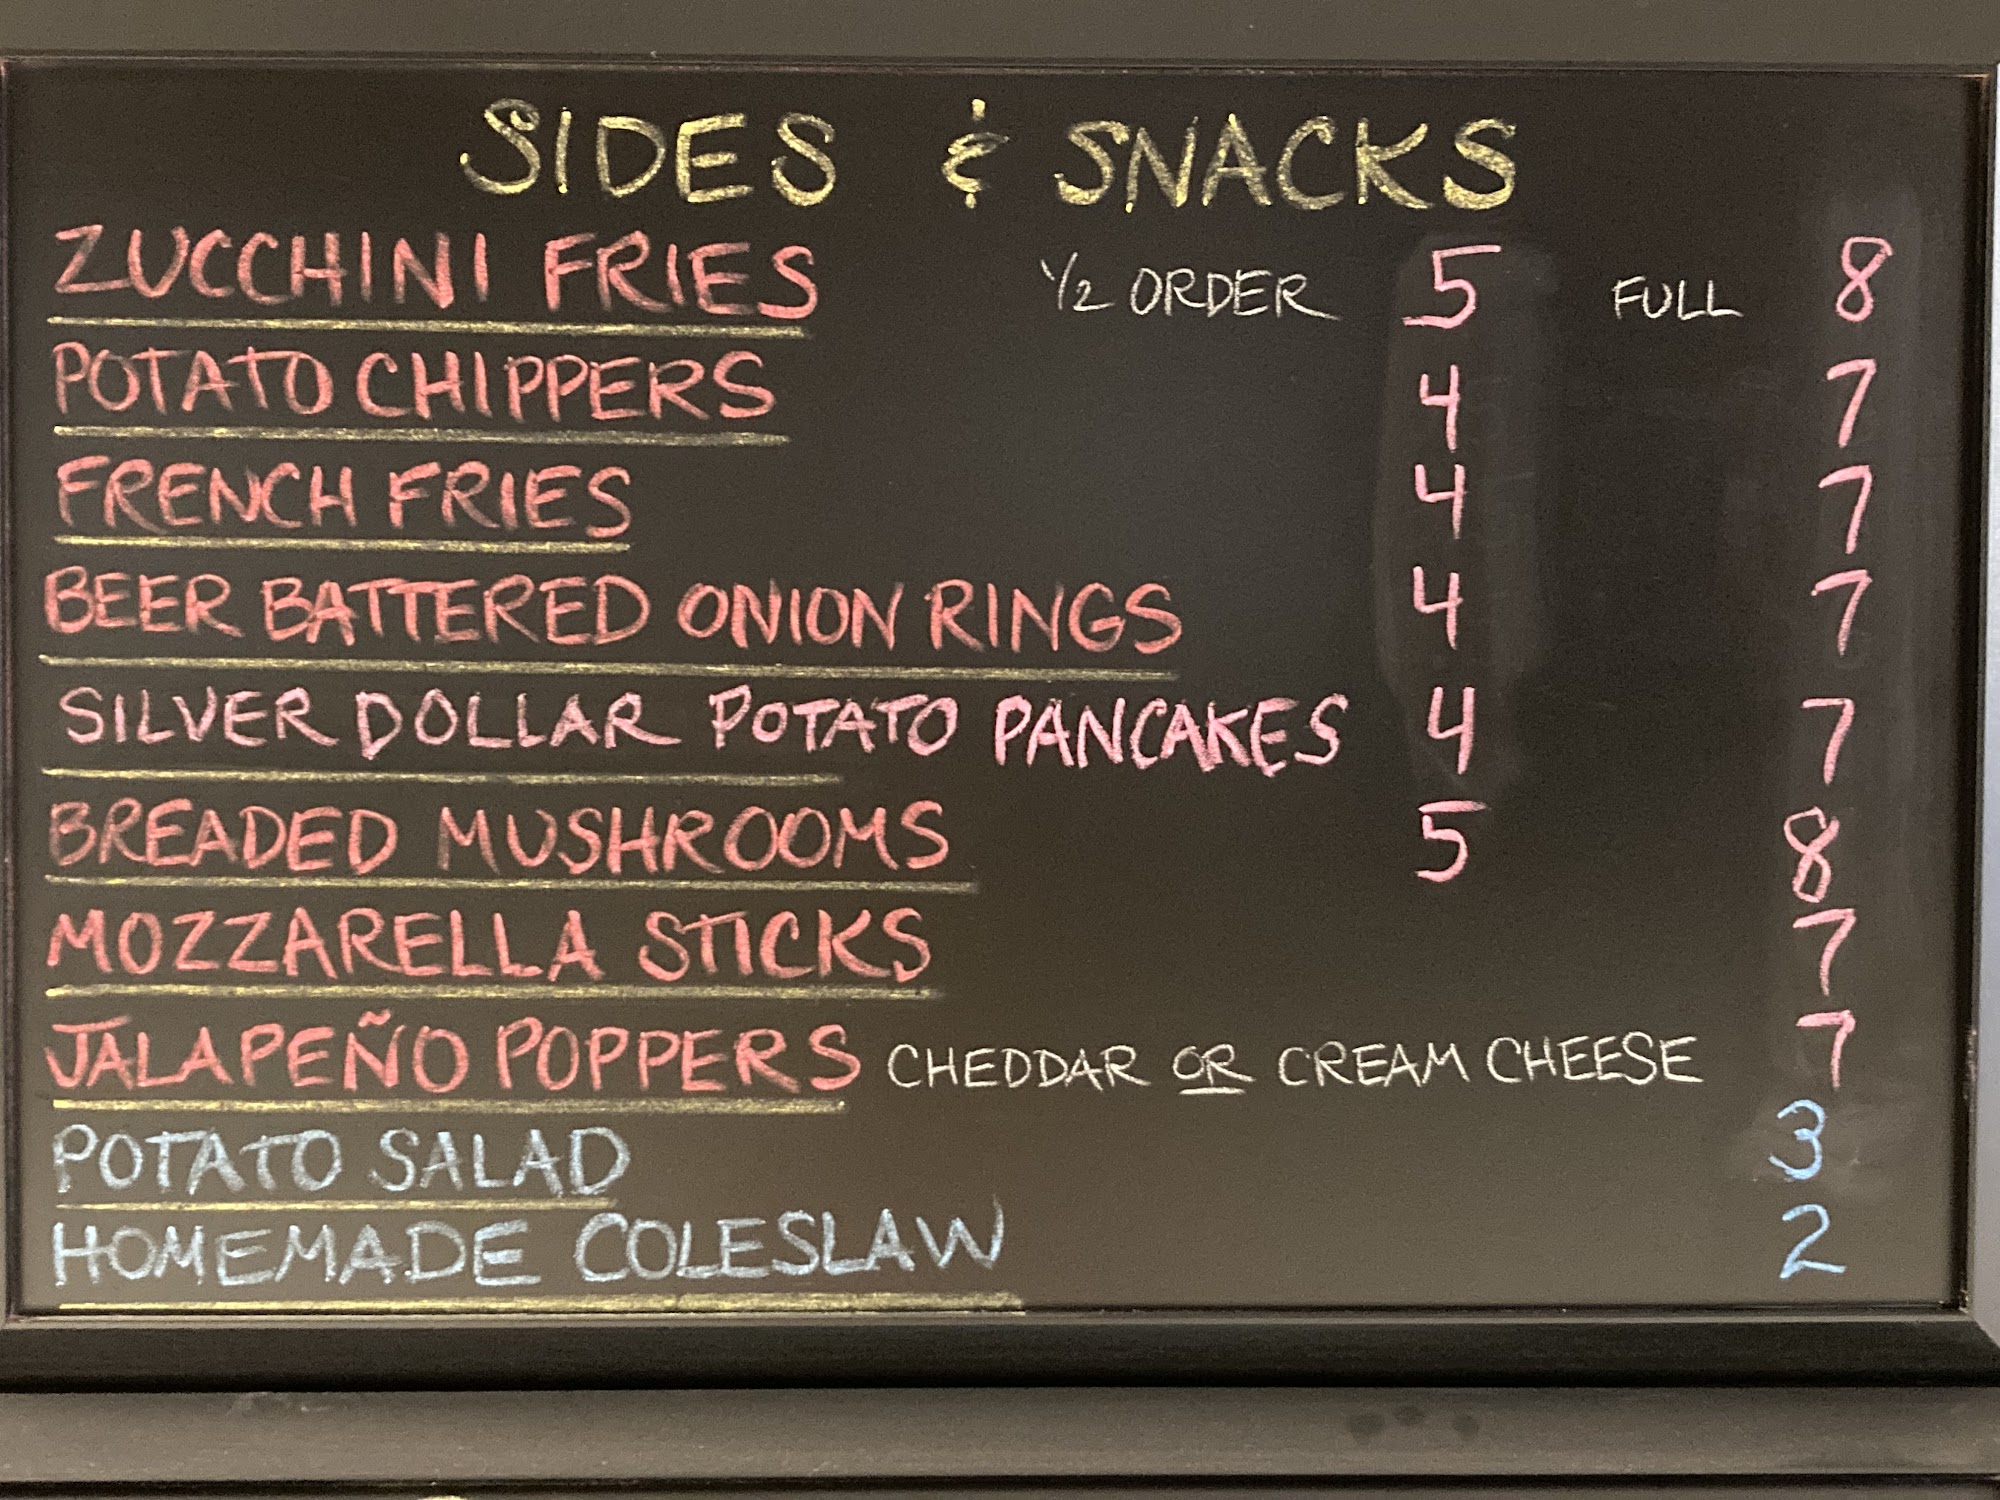 SIDES & SNACKS
ZUCCHINI FRIES ½ ORDER 5 FULL 8
POTATO CHIPPERS 4 7
FRENCH FRIES 4 7
BEER BATTERED ONION RINGS 4 7
SILVER DOLLAR POTATO PANCAKES 4 7
BREADED MUSHROOMS 5 8
MOZZARELLA STICKS 7
JALAPEÑO POPPERS CHEDDAR OR CREAM CHEESE 7
POTATO SALAD 3
HOMEMADE COLESLAW 2